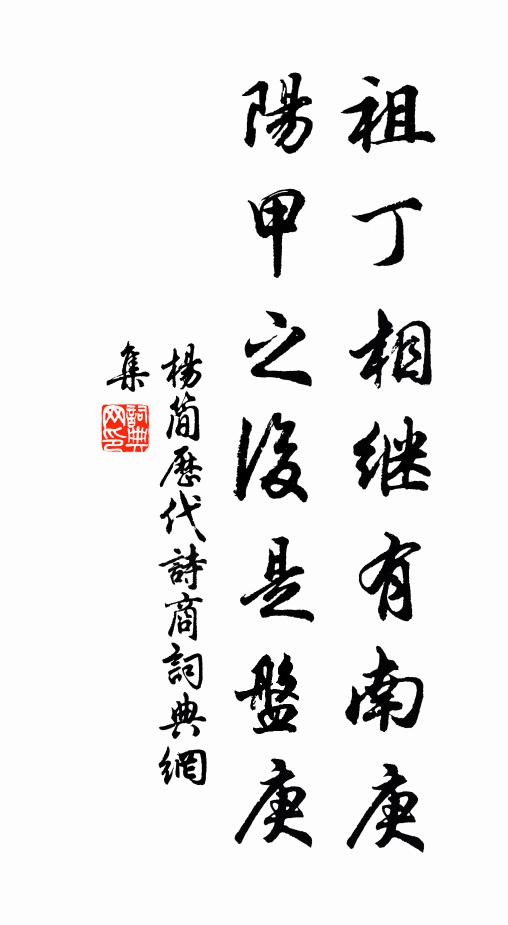 祖丁相继有南庚
陽甲之後是盤庚
楊簡歷代詩商詞典網
集
詞典网印